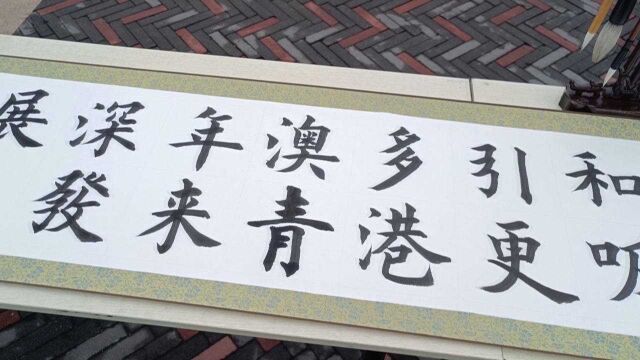 和吸
引更
多港
澳青
年来
深發
展